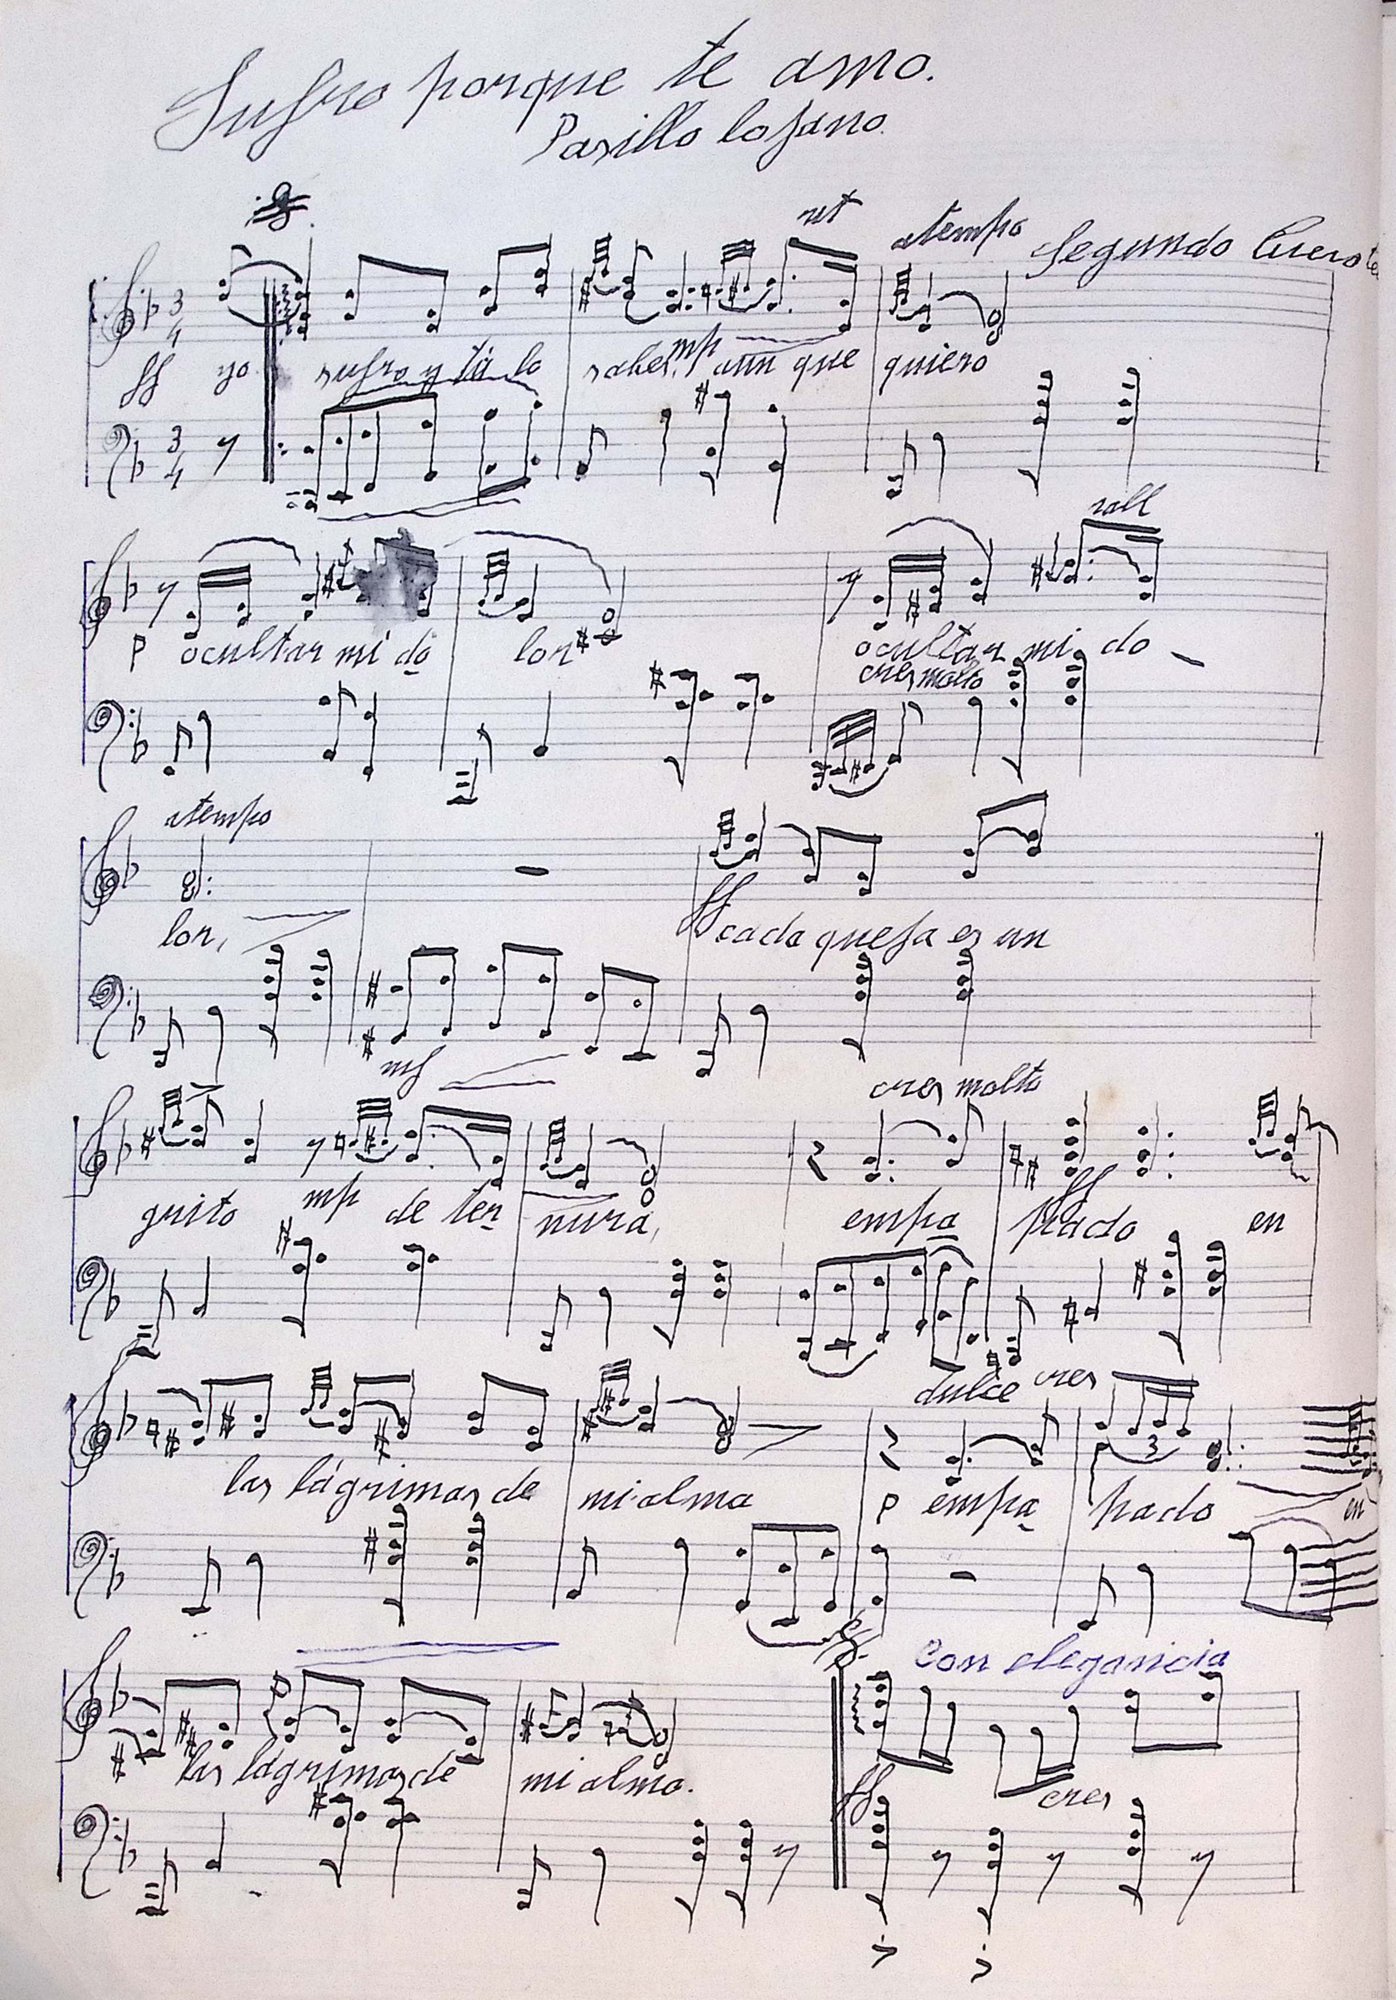 Sufro porque te amo.
Pasillo lojano.
rit atempo Segundo Cueva
3/4 ff yo sufro y tú lo sabes. mp aun que quiero
3/4
rall
P ocultar mi do lor ocultar mi do
cres molto
atempo
lor, ff cada queja es un
mf
cres molto
grito mp de ter nura, empa ff pado en
dulce cres
3
las lágrimas de mi alma P empa pado en
Con elegancia
P
las lágrimas de mi alma. ff cres